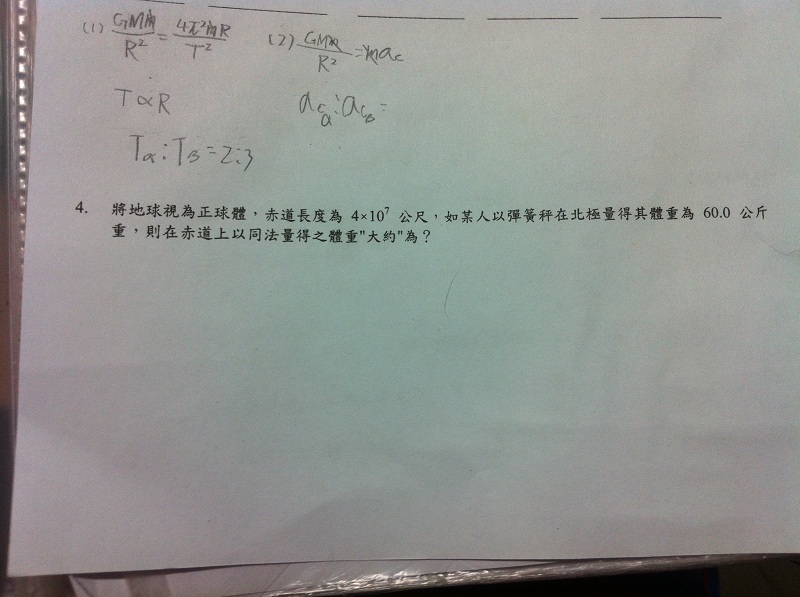 (1) GMm/R² = 4π²mR/T² (2) GMm/R² = mac
T∝R aca:acB=
Ta:TB=2:3
4. 將地球視為正球體，赤道長度為 4×10⁷ 公尺，如某人以彈簧秤在北極量得其體重為 60.0 公斤
重，則在赤道上以同法量得之體重"大約"為？